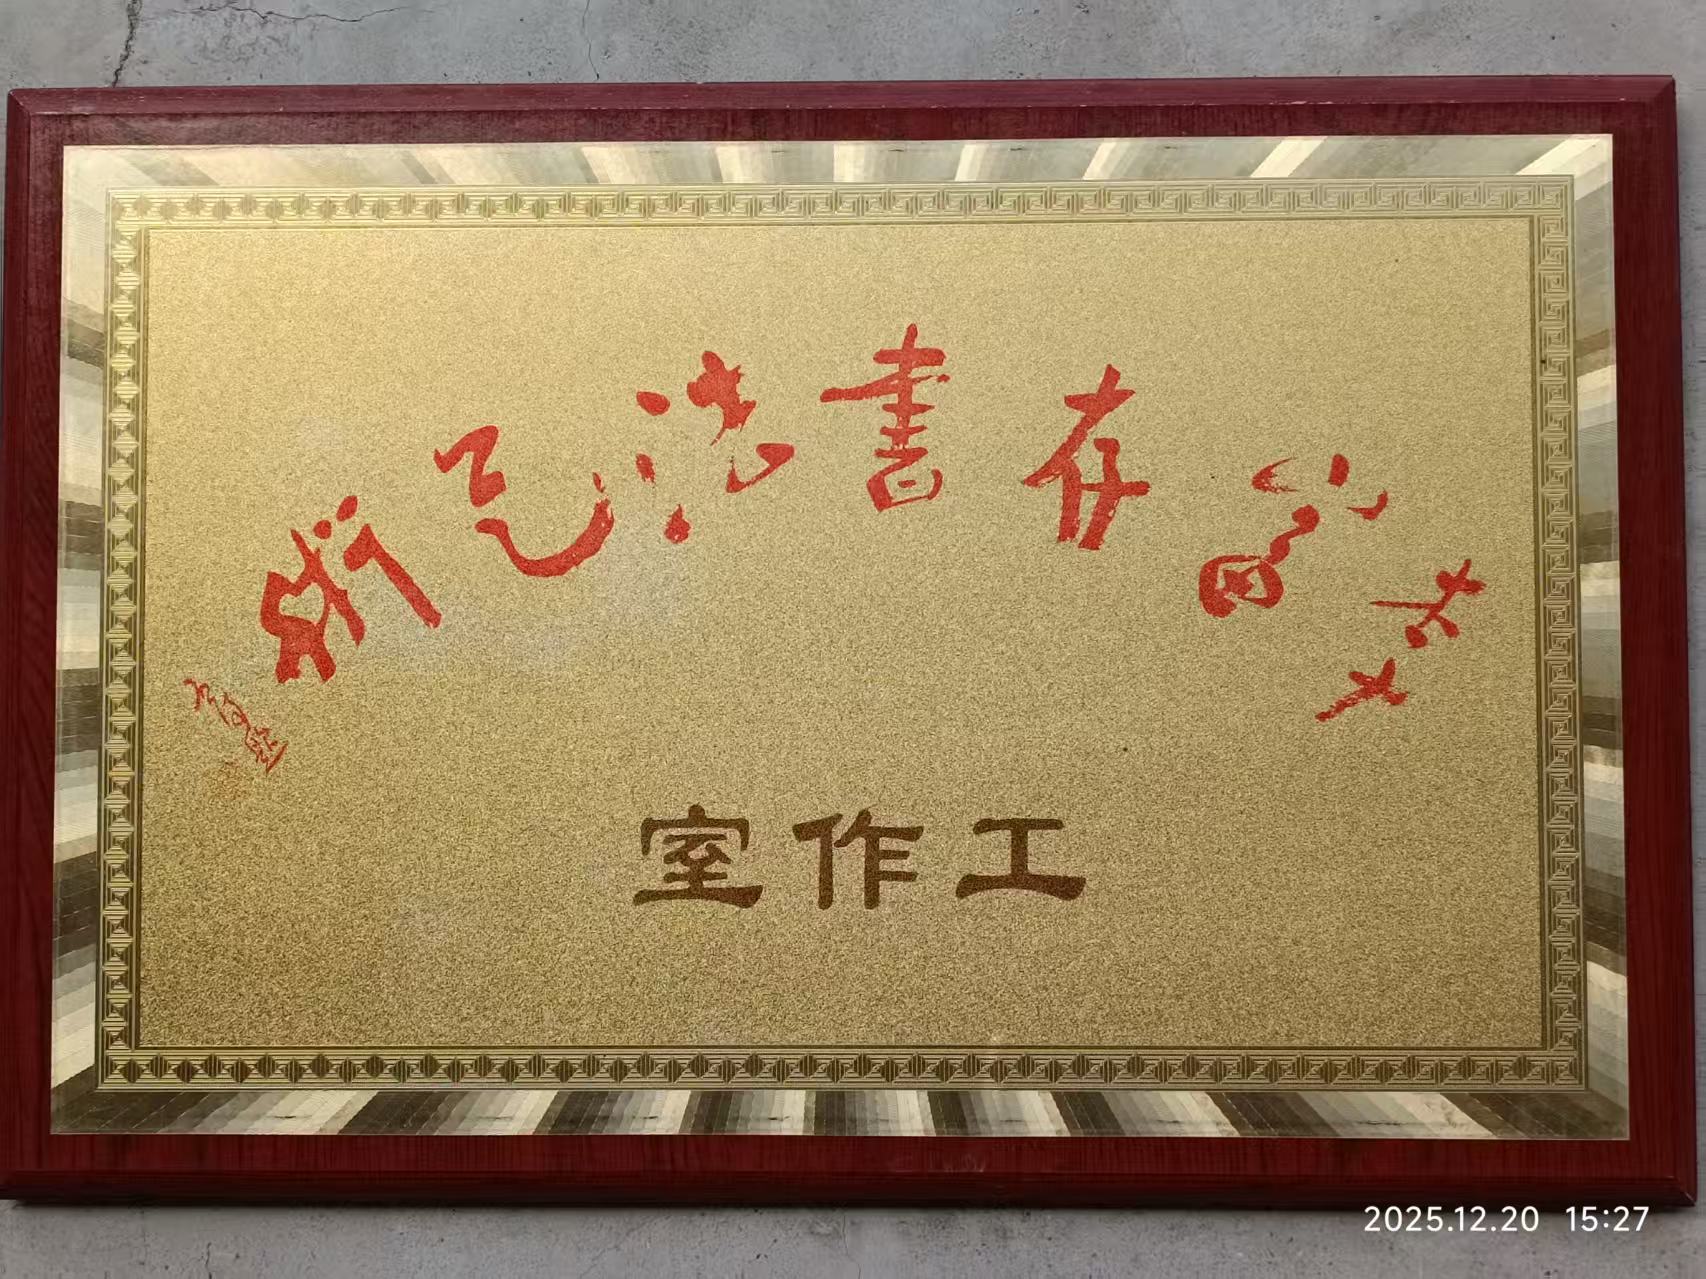 李富存書法艺術
工作室
2025.12.20 15:27